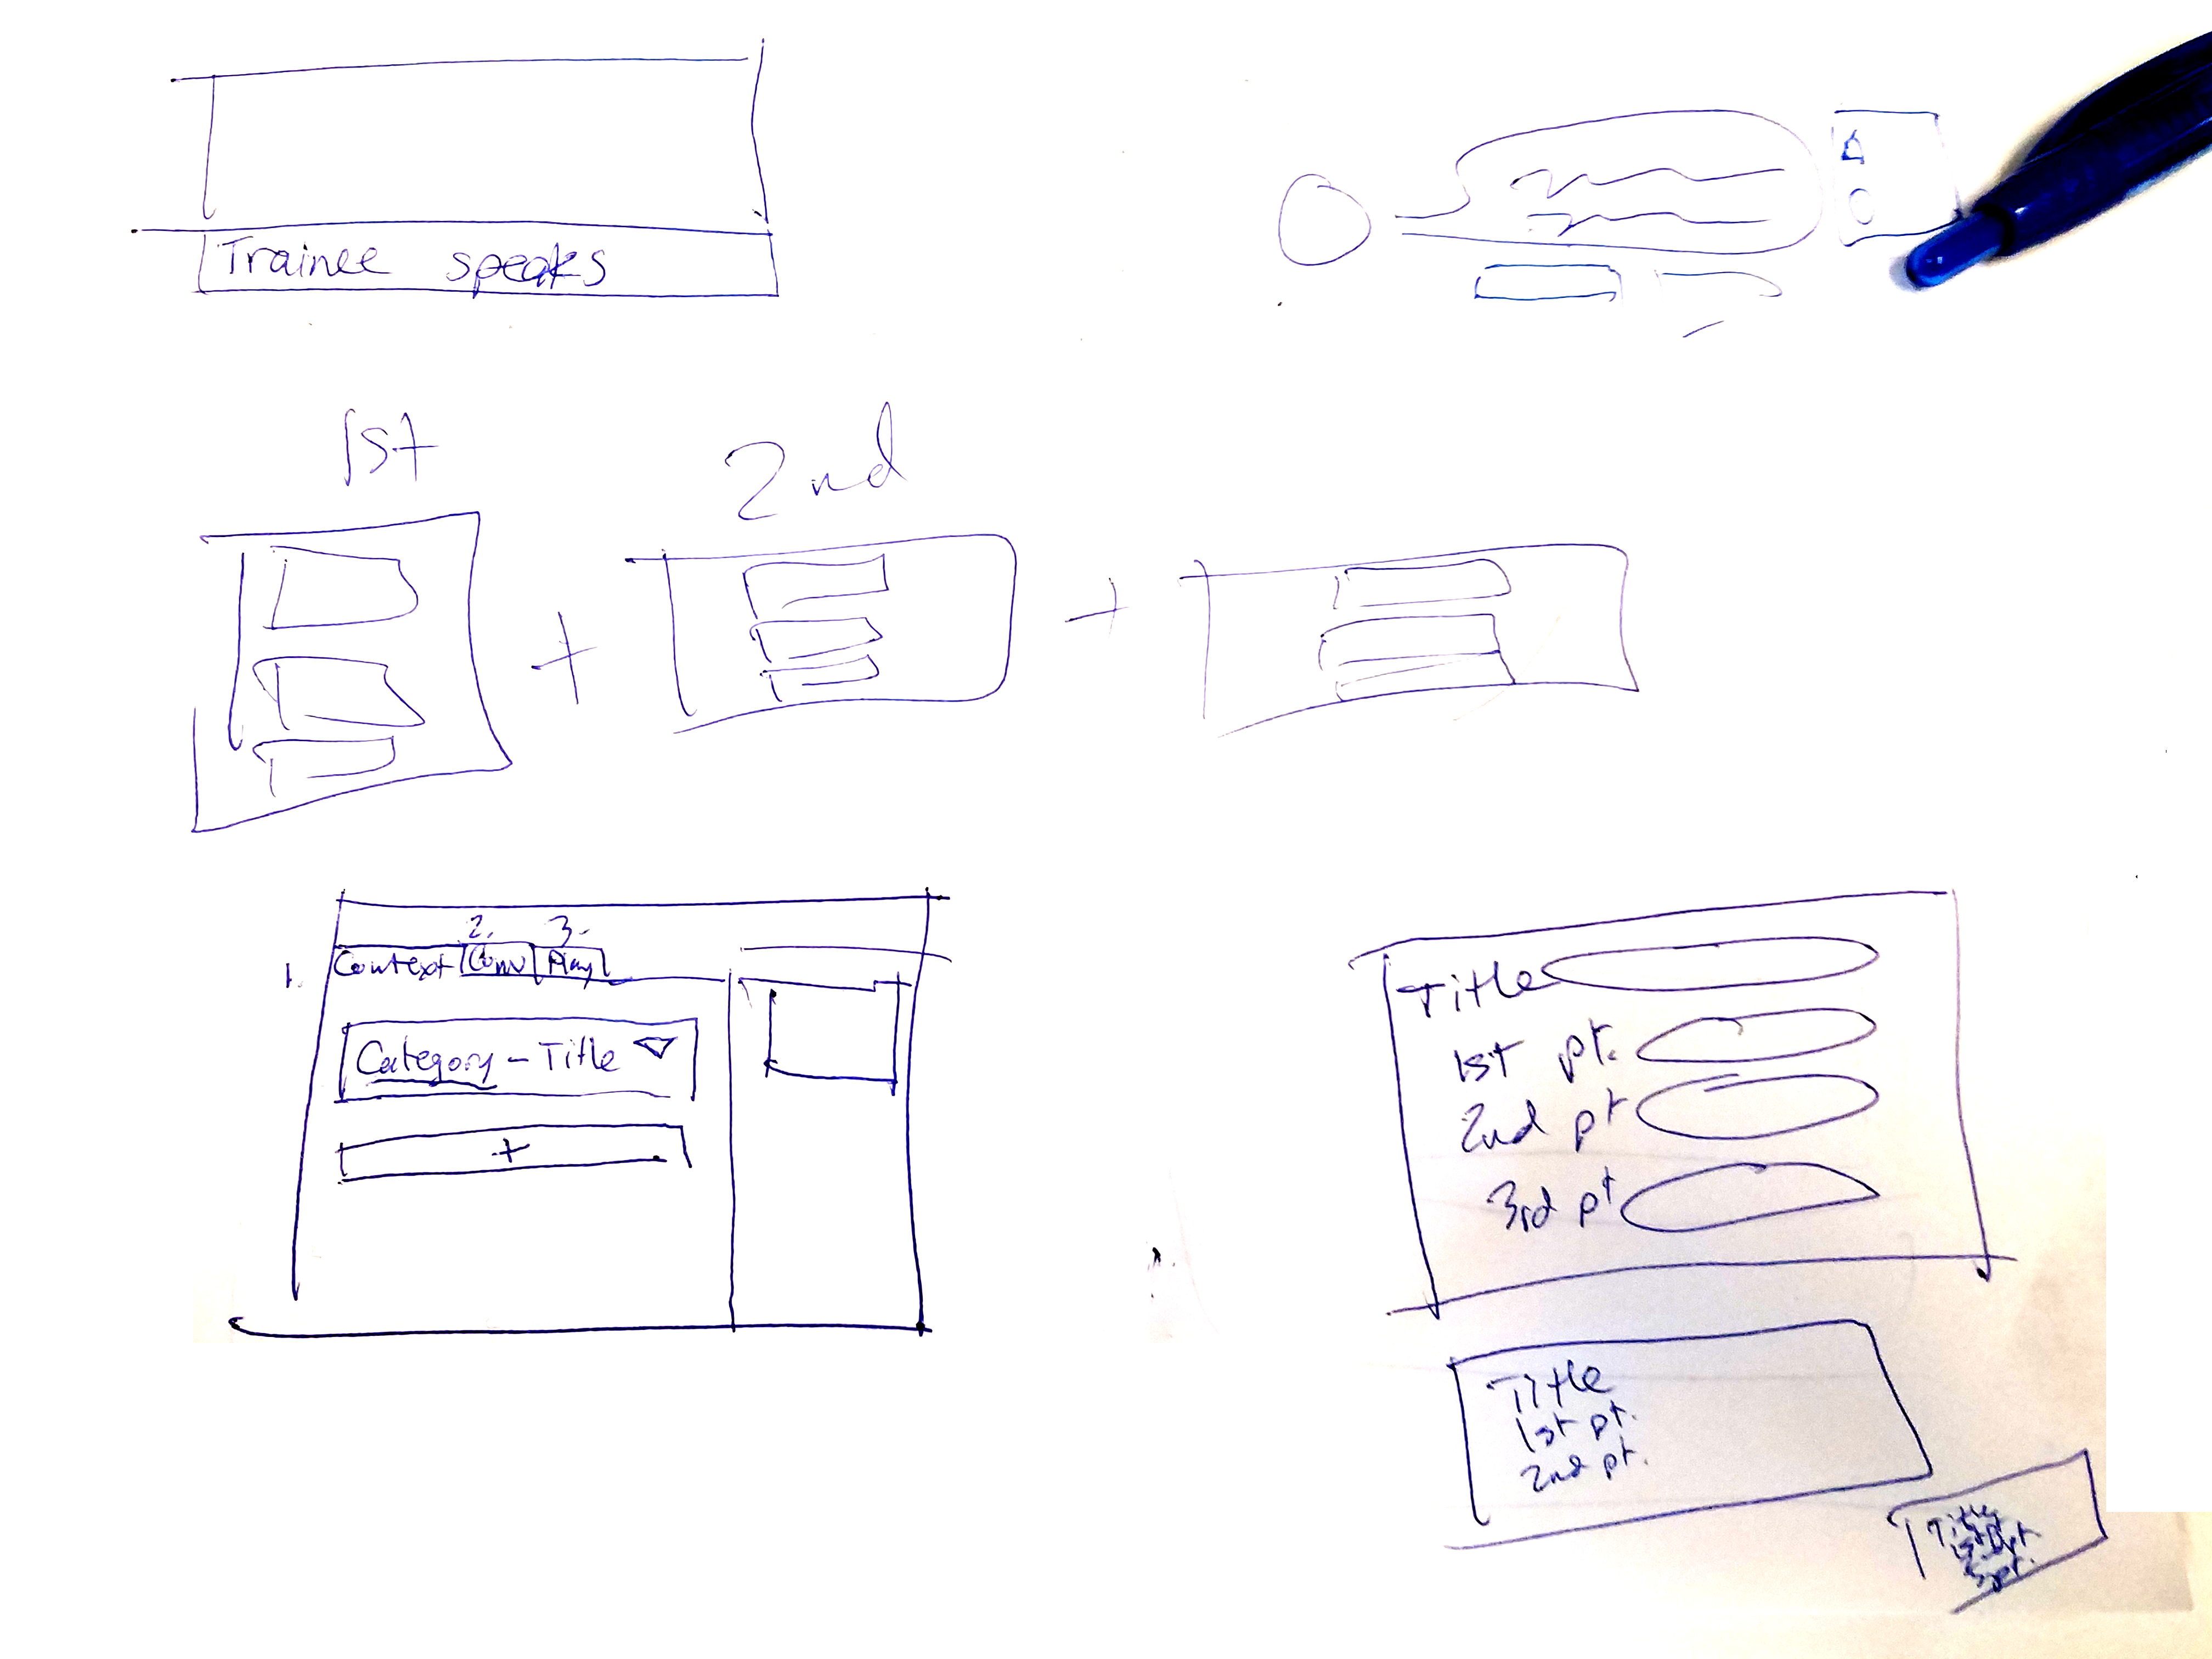 Trainee speaks
1st
2nd
+
+
2. 3.
1. Context Conv Play
Category - Title
+
Title
1st pt.
2nd pt
3rd pt
Title
1st pt.
2nd pt.
Title